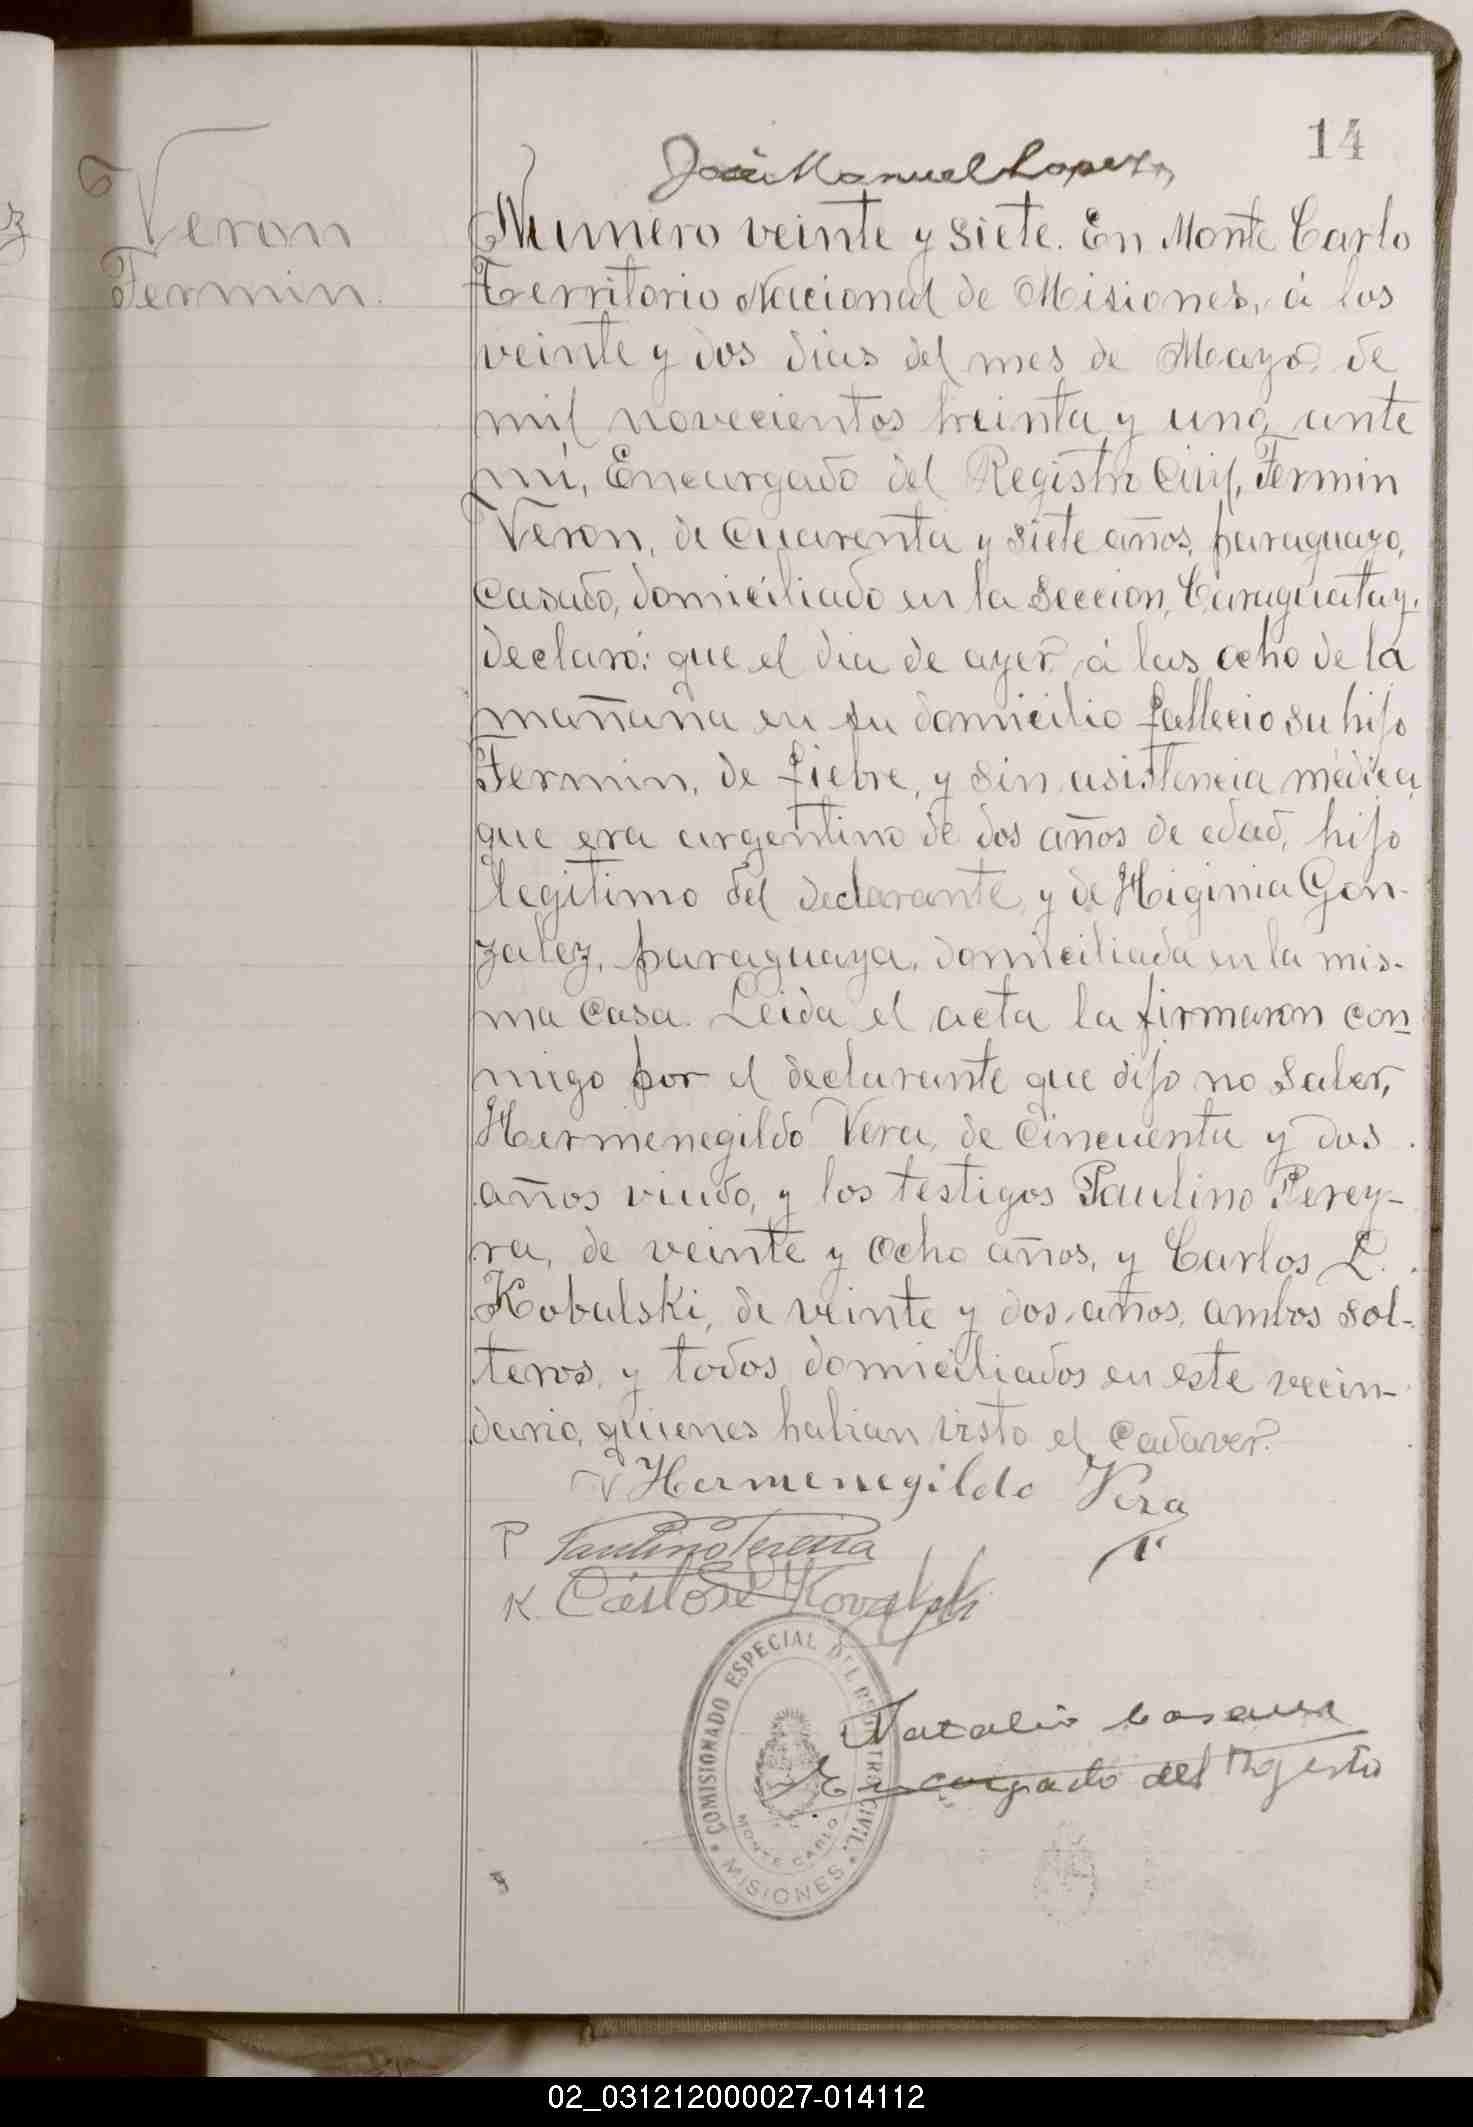 14
José Manuel Lopez
Veron
Fermin.
Numero veinte y siete. En Monte Carlo
Territorio Nacional de Misiones, á los
veinte y dos dias del mes de Mayo de
mil novecientos treinta y uno, ante
mi, Encargado del Registro Civil, Fermin
Veron, de cuarenta y siete años, paraguayo,
casado, domiciliado en la seccion, Caraguatay,
declaró: que el dia de ayer á las ocho de la
mañana en su domicilio fallecio su hijo
Fermin, de fiebre, y sin asistencia médica,
que era argentino de dos años de edad, hijo
legitimo del declarante, y de Higinia Gon-
zalez, paraguaya, domiciliada en la mis-
ma casa. Leida el acta la firmaron con
migo por el declarante que dijo no saber,
Hermenegildo Vera, de cincuenta y dos
años viudo, y los testigos Paulino Perey-
ra, de veinte y ocho años, y Carlos L.
Kobalski, de veinte y dos años, ambos sol-
teros, y todos domiciliados en este vecin-
dario, quienes habian visto el cadaver.
V Hermenegildo Vera
P Paulino Pereira
K. Carlos L Kovalski
COMISIONADO ESPECIAL DEL REGISTRO CIVIL.
MONTE CARLO
MISIONES
Natalio
Encargado del Registro
02_031212000027-014112